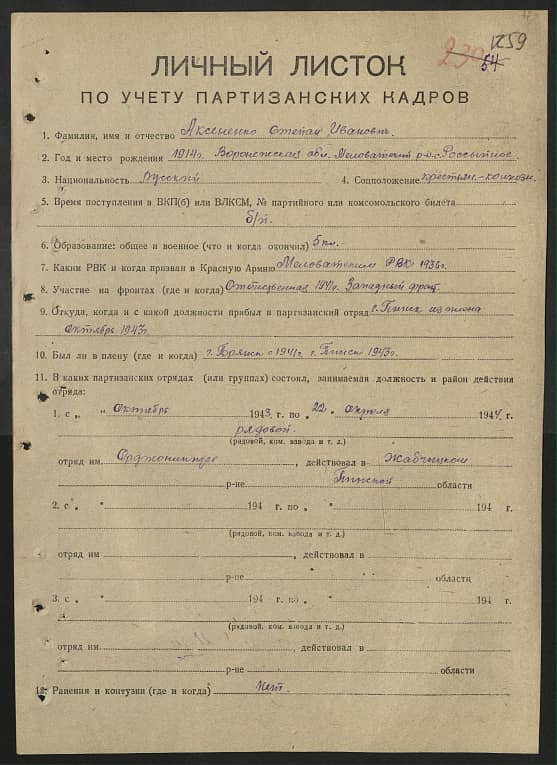 1259
230
54
ЛИЧНЫЙ ЛИСТОК
ПО УЧЕТУ ПАРТИЗАНСКИХ КАДРОВ
1. Фамилия, имя и отчество Аксененко Степан Иванович.
2. Год и место рождения 1914г. Воронежская обл. Меловатский р-н с. Россыпное
3. Национальность Русский 4. Соцположение крестьян.-колхозн.
5. Время поступления в ВКП(б) или ВЛКСМ, № партийного или комсомольского билета
б/п.
6. Образование: общее и военное (что и когда окончил) 5 кл.
7. Каким РВК и когда призван в Красную Армию Меловатским РВК 1936г.
8. Участие на фронтах (где и когда) Отечественная 1941г. Западный фронт
9. Откуда, когда и с какой должности прибыл в партизанский отряд г. Пинск из плена
Октябрь 1943г.
10. Был ли в плену (где и когда) г. Брянск с 1941г. г. Пинск 1943г.
11. В каких партизанских отрядах (или группах) состоял, занимаемая должность и район действия
отряда:
1. с „ “ Октябрь 1943 г. по „22“ апреля 1944 г.
рядовой.
(рядовой, ком. взвода и т. д.)
отряд им Орджоникидзе, действовал в Жабчицком
р-не Пинской области
2. с „ “ 194 г. по „ “ 194 г.
(рядовой, ком. взвода и т. д.)
отряд им , действовал в
р-не области
3. с „ “ 194 г. по „ “ 194 г.
(рядовой, ком. взвода и т. д.)
отряд им. , действовал в
р-не области
12. Ранения и контузии (где и когда) Нет.